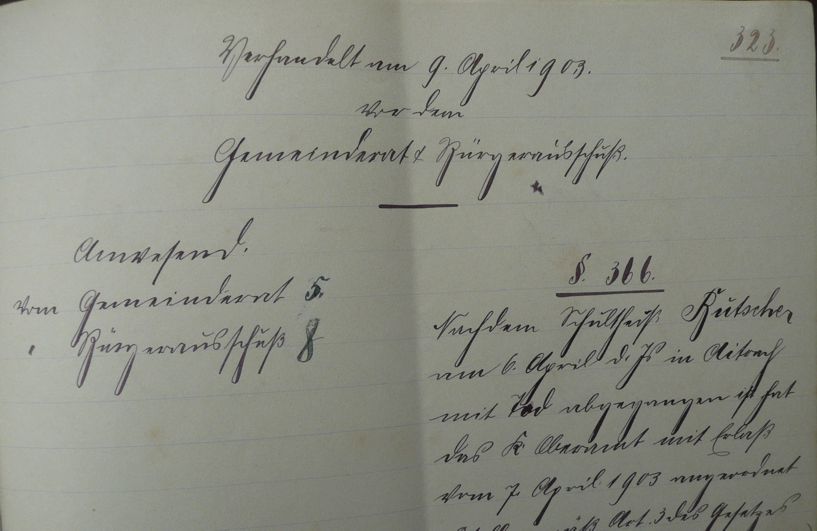 323.
Verhandelt am 9. April 1903.
vor dem
Gemeinderat & Bürgerausschuß.
Anwesend.
vom Gemeinderat 5.
" Bürgerausschuß 8
§. 366.
Nachdem Schultheiß Kutscher
am 6. April d. Js in Aitrach
mit Tod abgegangen ist hat
das K. Oberamt mit Erlaß
vom 7. April 1903 angeordnet
Art. 3 des Gesetzes